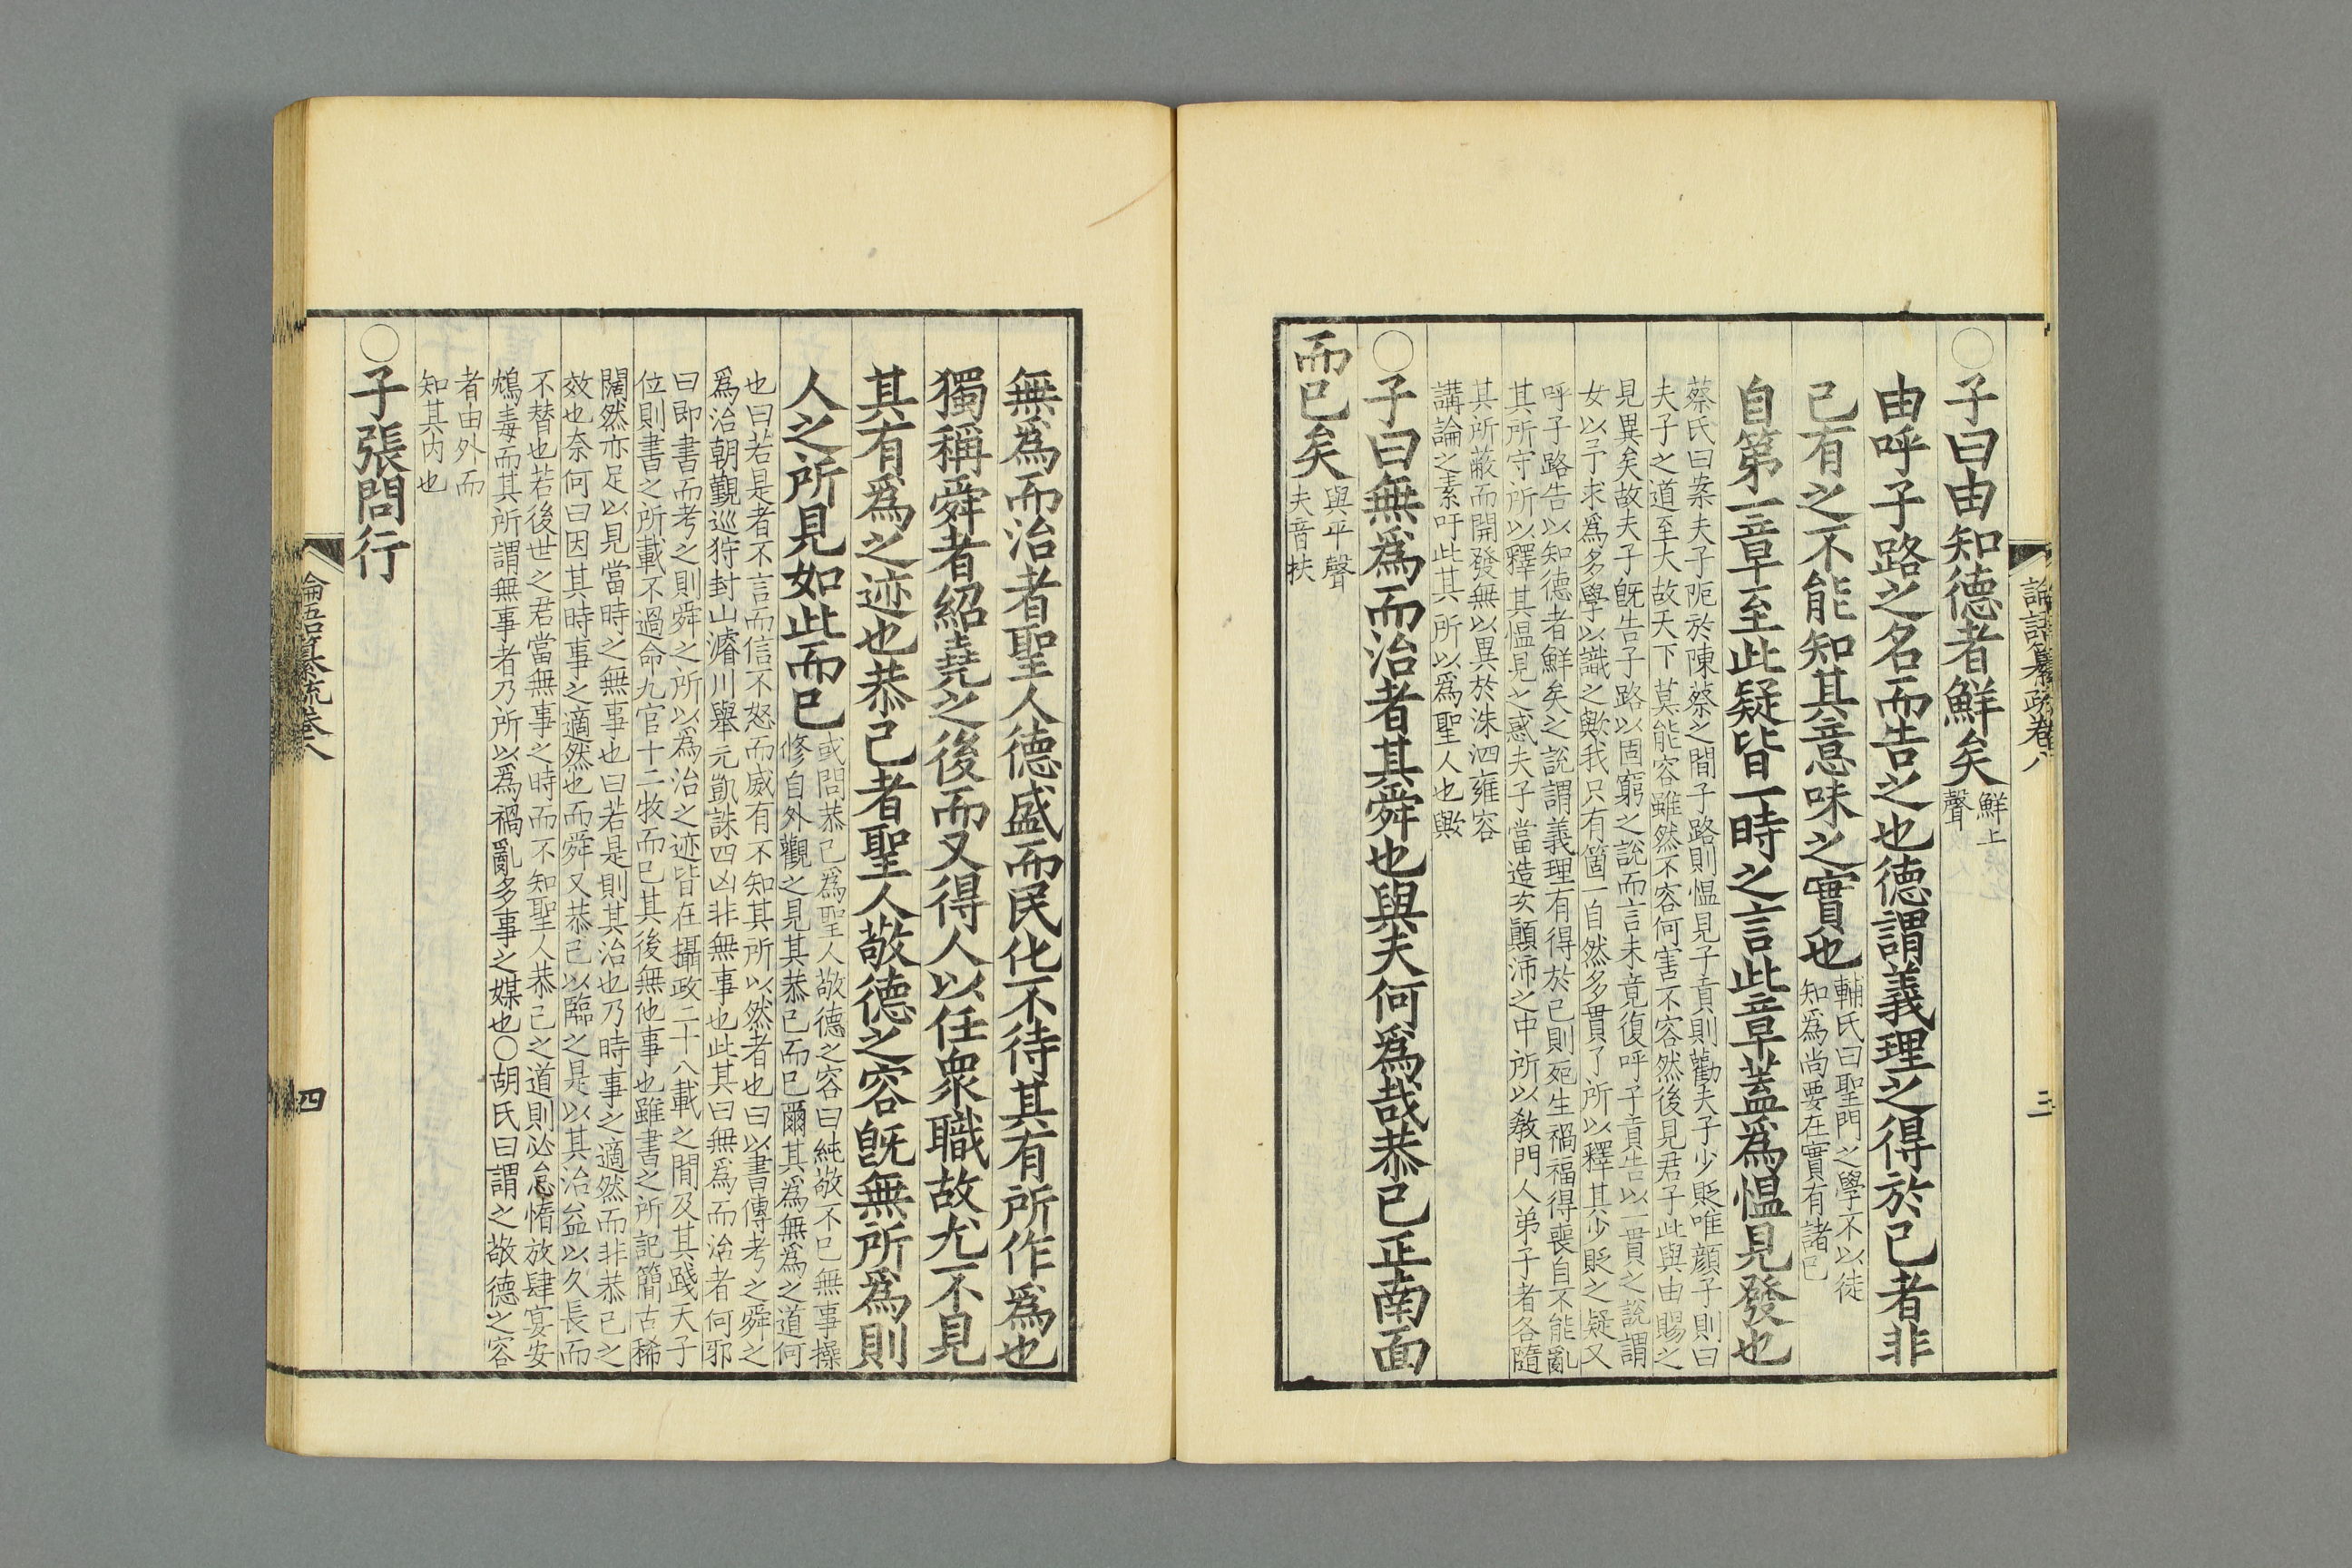 論語纂疏卷八
三
○子曰由知德者鮮矣鮮上
聲
由呼子路之名而告之也德謂義理之得於己者非
己有之不能知其意味之實也輔氏曰聖門之學不以徒
知爲尚要在實有諸己
自第一章至此疑皆一時之言此章蓋爲愠見發也
蔡氏曰案夫子阨於陳蔡之間子路則愠見子貢則勸夫子少貶唯顔子則曰
夫子之道至大故天下莫能容雖然不容何害不容然後見君子此與由賜之
見異矣故夫子旣告子路以固窮之說而言未竟復呼子貢告以一貫之說謂
女以予求爲多學以識之歟我只有箇一自然多貫了所以釋其少貶之疑又
呼子路告以知德者鮮矣之說謂義理有得於己則死生禍福得喪自不能亂
其所守所以釋其愠見之惑夫子當造次顚沛之中所以敎門人弟子者各隨
其所蔽而開發無以異於洙泗雍容
講論之素吁此其所以爲聖人也歟
○子曰無爲而治者其舜也與夫何爲哉恭己正南面
而已矣與平聲
夫音扶
無爲而治者聖人德盛而民化不待其有所作爲也
獨稱舜者紹堯之後而又得人以任衆職故尤不見
其有爲之迹也恭己者聖人敬德之容旣無所爲則
人之所見如此而已或問恭己爲聖人敬德之容曰純敬不已無事操
修自外觀之見其恭己而已爾其爲無爲之道何
也曰若是者不言而信不怒而威有不知其所以然者也曰以書傳考之舜之
爲治朝覲巡狩封山濬川舉元凱誅四凶非無事也此其曰無爲而治者何邪
曰即書而考之則舜之所以爲治之迹皆在攝政二十八載之間及其踐天子
位則書之所載不過命九官十二牧而已其後無他事也雖書之所記簡古稀
闊然亦足以見當時之無事也曰若是則其治也乃時事之適然而非恭己之
效也奈何曰因其時事之適然也而舜又恭己以臨之是以其治益以久長而
不替也若後世之君當無事之時而不知聖人恭己之道則必怠惰放肆宴安
鴆毒而其所謂無事者乃所以爲禍亂多事之媒也○胡氏曰謂之敬德之容
者由外而
知其内也
○子張問行
論語纂疏卷八
四